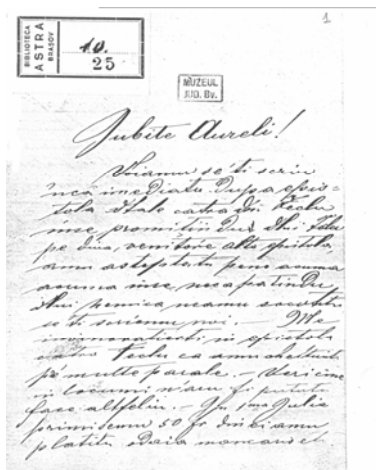 1
BIBLIOTECA
ASTRA
BRASOV
10.
25
MUZEUL
JUD. Bv.
Iubite Aureli!
Voiamu se'ti scriu
inca imediatu dupa epis-
tola dtale catra dn Teclu
inse promitiindu
pe diua, venitóre alta epistola,
amu asteptatu pene acuma
acuma inse, necapatindu
nemica neamu socotitu
se'ti scriemu noi. — Me
in epistola
catra Teclu ca amu cheltuit
pe multe parale. — Veri cine
in locumi n'aru fi pututu
face altfeliu. — Julie
primisemu 50 fr din ei amu
platitu odaia mancand et